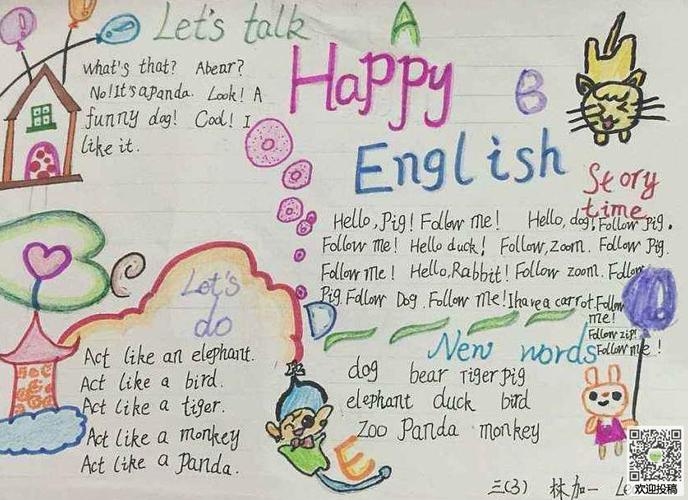 Let's talk
what's that? Abear?
No! It's a panda. Look! A
funny dog! Cool! I
like it.
A
Happy
B
English
Story
time
Hello, Pig! Follow me! Hello, dog! Follow Pig.
Follow me! Hello duck! Follow, zoom. Follow Pig.
Follow me! Hello, Rabbit! Follow zoom. Follow
Pig. Follow Dog. Follow me! I have a carrot. Follow
me!
Follow zip!
Follow me!
Let's
do
Act like an elephant.
Act like a bird.
Act like a tiger.
Act like a monkey
Act like a Panda.
D
New words
dog bear Tiger pig
elephant duck bird
Zoo Panda monkey
E
三(3) 林加一
欢迎投稿